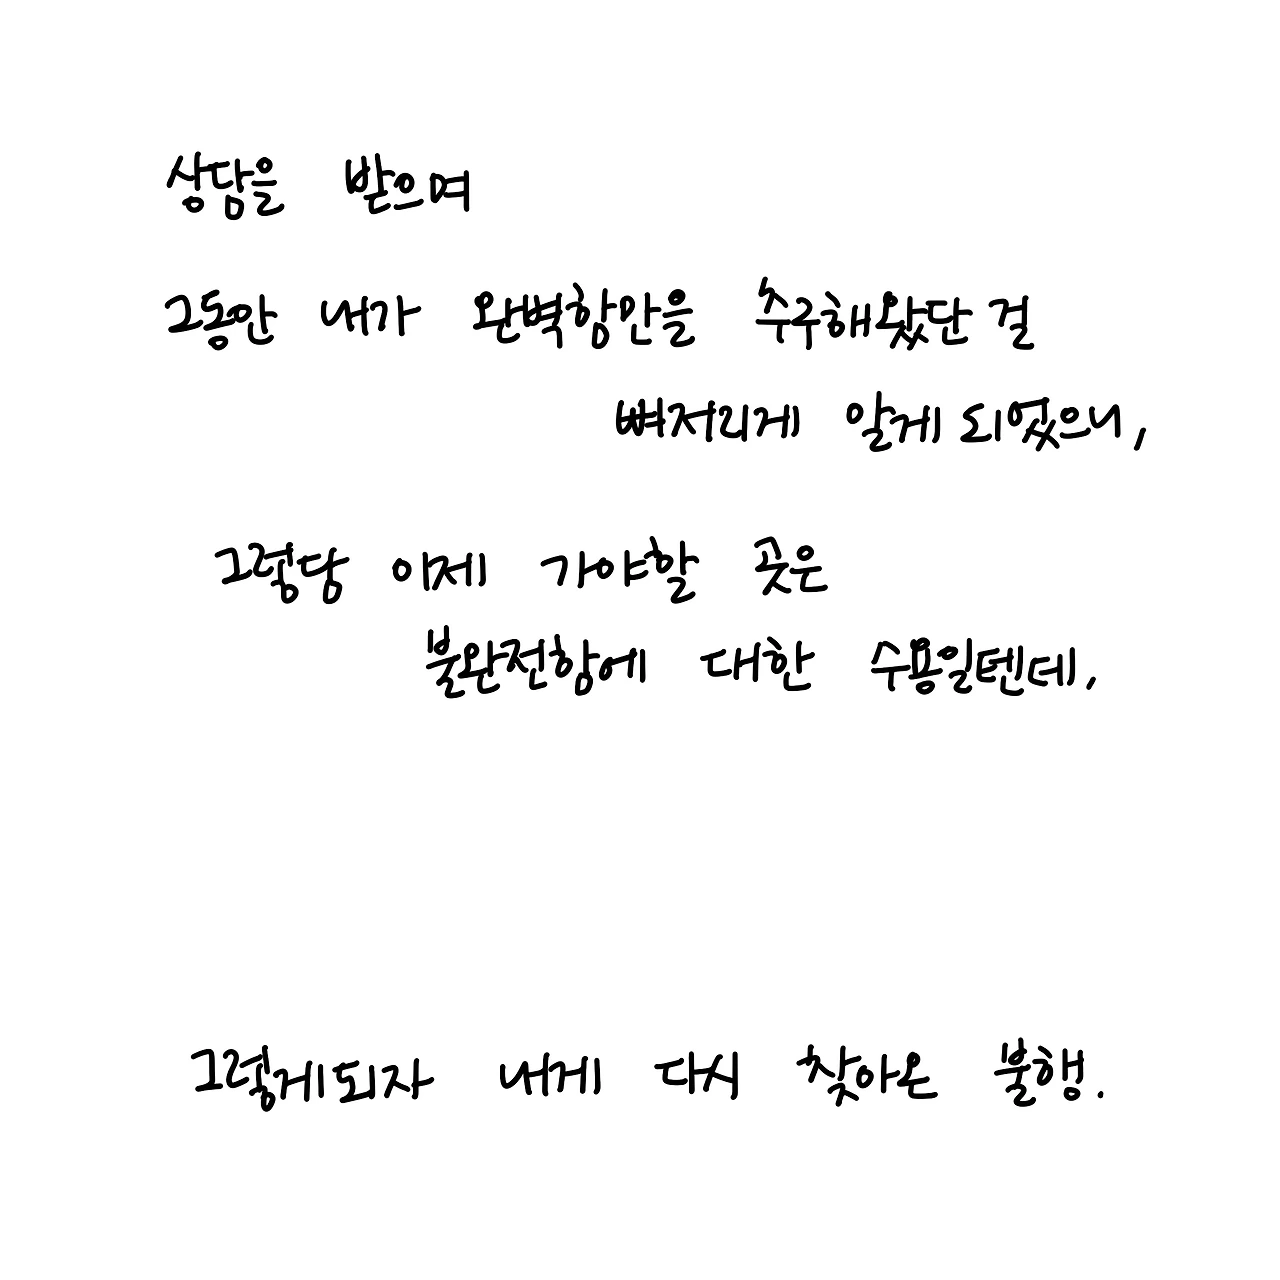 상담을 받으며
그동안 내가 완벽함만을 추구해왔단 걸
뼈저리게 알게 되었으니,
그렁당 이제 가야할 곳은
불완전함에 대한 수용일텐데,
그렇게되자 내게 다시 찾아온 불행.